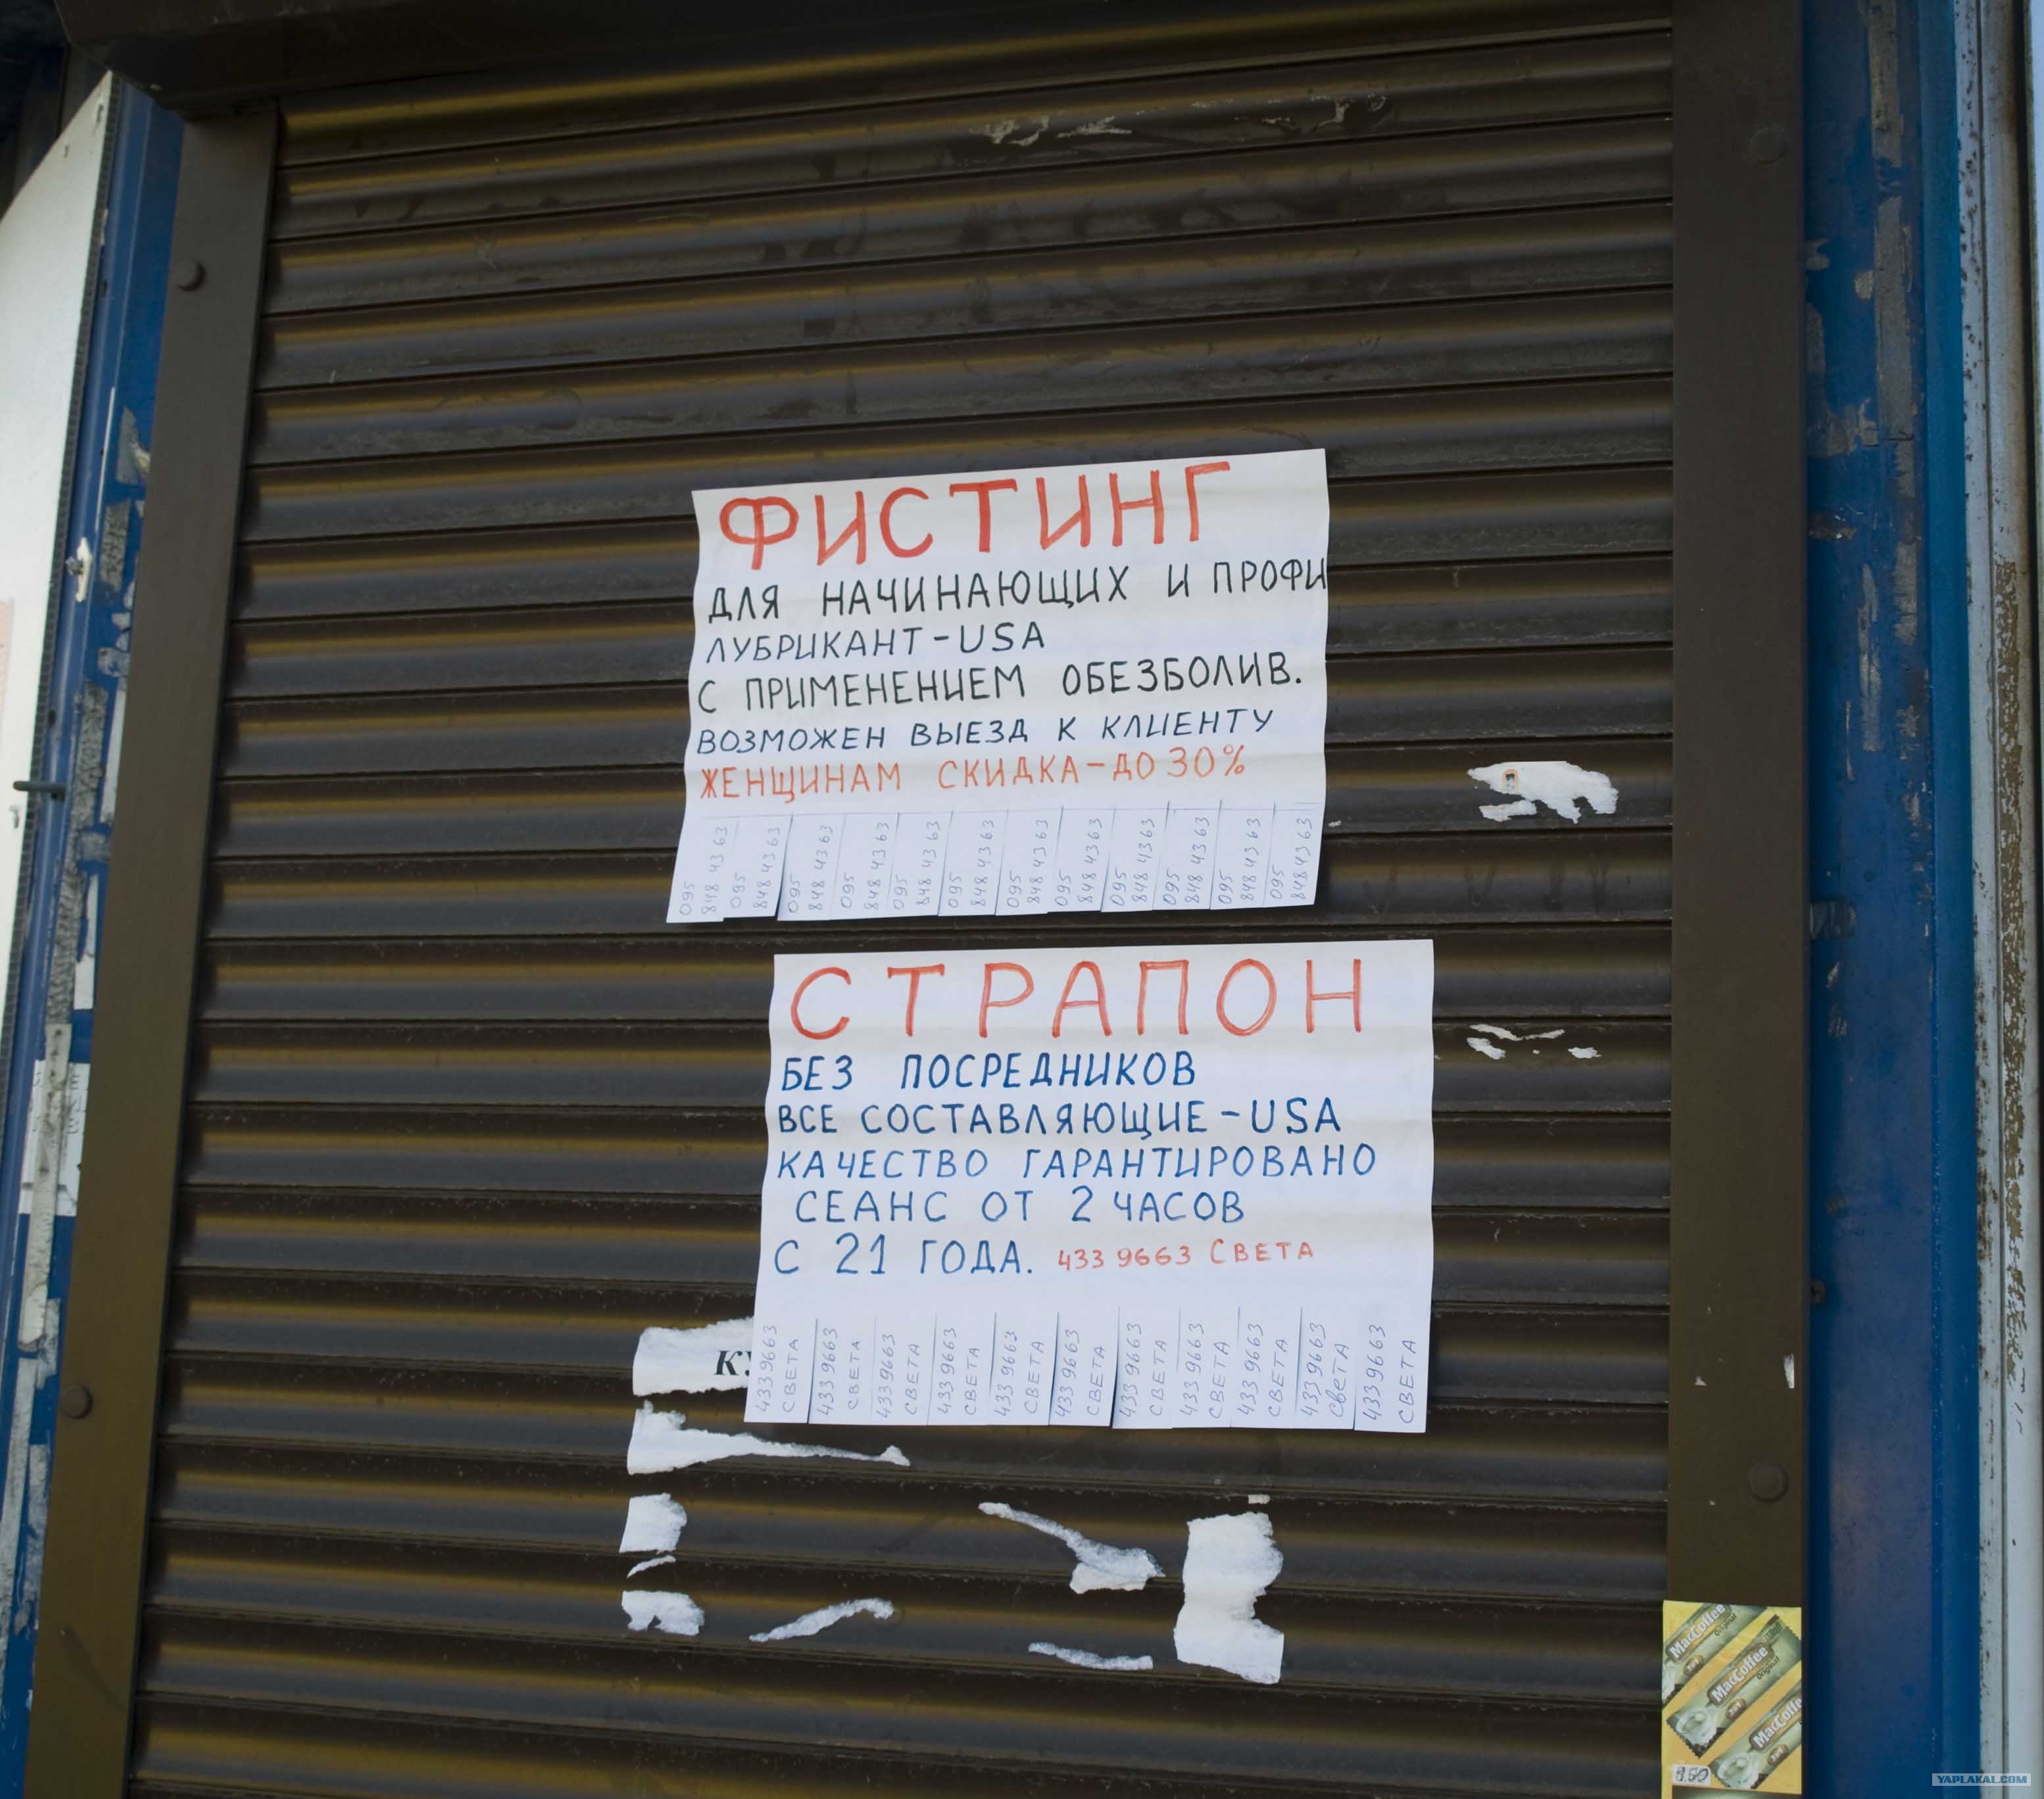 ФИСТИНГ
ДЛЯ НАЧИНАЮЩИХ И ПРОФИ
ЛУБРИКАНТ-USA
С ПРИМЕНЕНИЕМ ОБЕЗБОЛИВ.
ВОЗМОЖЕН ВЫЕЗД К КЛИЕНТУ
ЖЕНЩИНАМ СКИДКА-ДО 30%
095 848 43 63
095 848 43 63
095 848 43 63
095 848 43 63
095 848 43 63
095 848 43 63
095 848 43 63
095 848 43 63
095 848 43 63
095 848 43 63
095 848 43 63
095 848 43 63
СТРАПОН
БЕЗ ПОСРЕДНИКОВ
ВСЕ СОСТАВЛЯЮЩИЕ-USA
КАЧЕСТВО ГАРАНТИРОВАНО
СЕАНС ОТ 2 ЧАСОВ
С 21 ГОДА. 433 9663 СВЕТА
433 9663 СВЕТА
433 9663 СВЕТА
433 9663 СВЕТА
433 9663 СВЕТА
433 9663 СВЕТА
433 9663 СВЕТА
433 9663 СВЕТА
433 9663 СВЕТА
433 9663 СВЕТА
433 9663 Света
433 9663 СВЕТА
MacCoffee
Original
MacCoffee
Original
MacCoffe
YAPLAKAL.COM